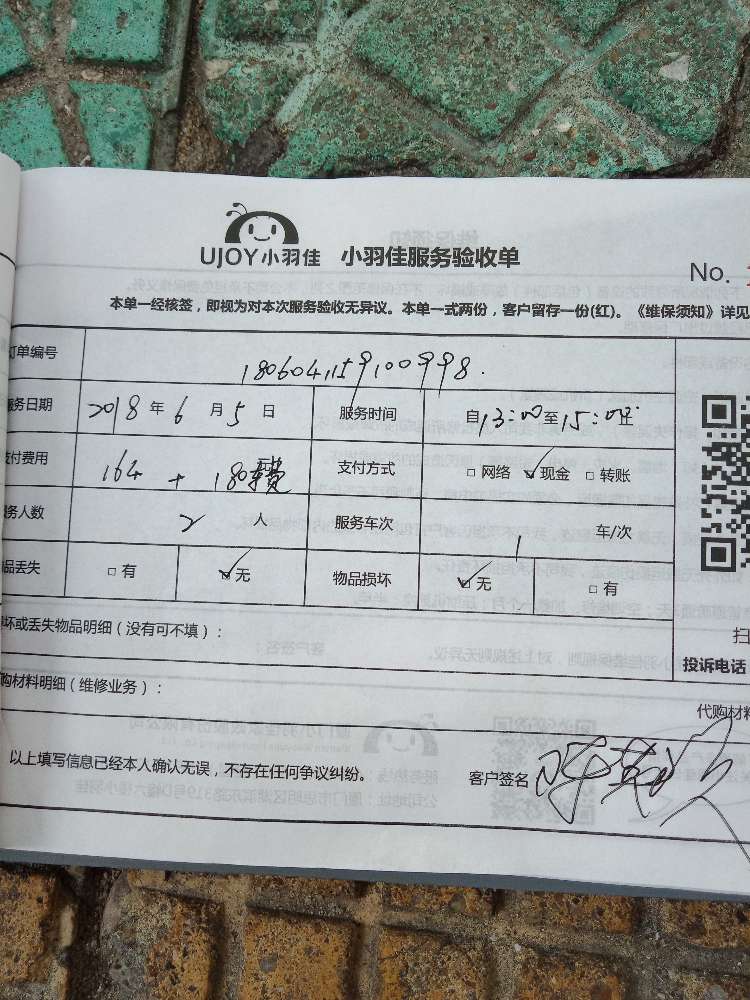 UJOY小羽佳 小羽佳服务验收单
No.
本单一经核签，即视为对本次服务验收无异议。本单一式两份，客户留存一份(红)。《维保须知》详见
订单编号 1806041159100998.
服务日期 2018 年 6 月 5 日 服务时间 自13:00至15:00止
支付费用 164 + 180 支付方式 □网络 ☑现金 □转账
服务人数 2 人 服务车次 1 车/次
品丢失 □有 ☑无 物品损坏 ☑无 □有
坏或丢失物品明细（没有可不填）：
扫
投诉电话
购材料明细（维修业务）：
代购材料
以上填写信息已经本人确认无误，不存在任何争议纠纷。 客户签名